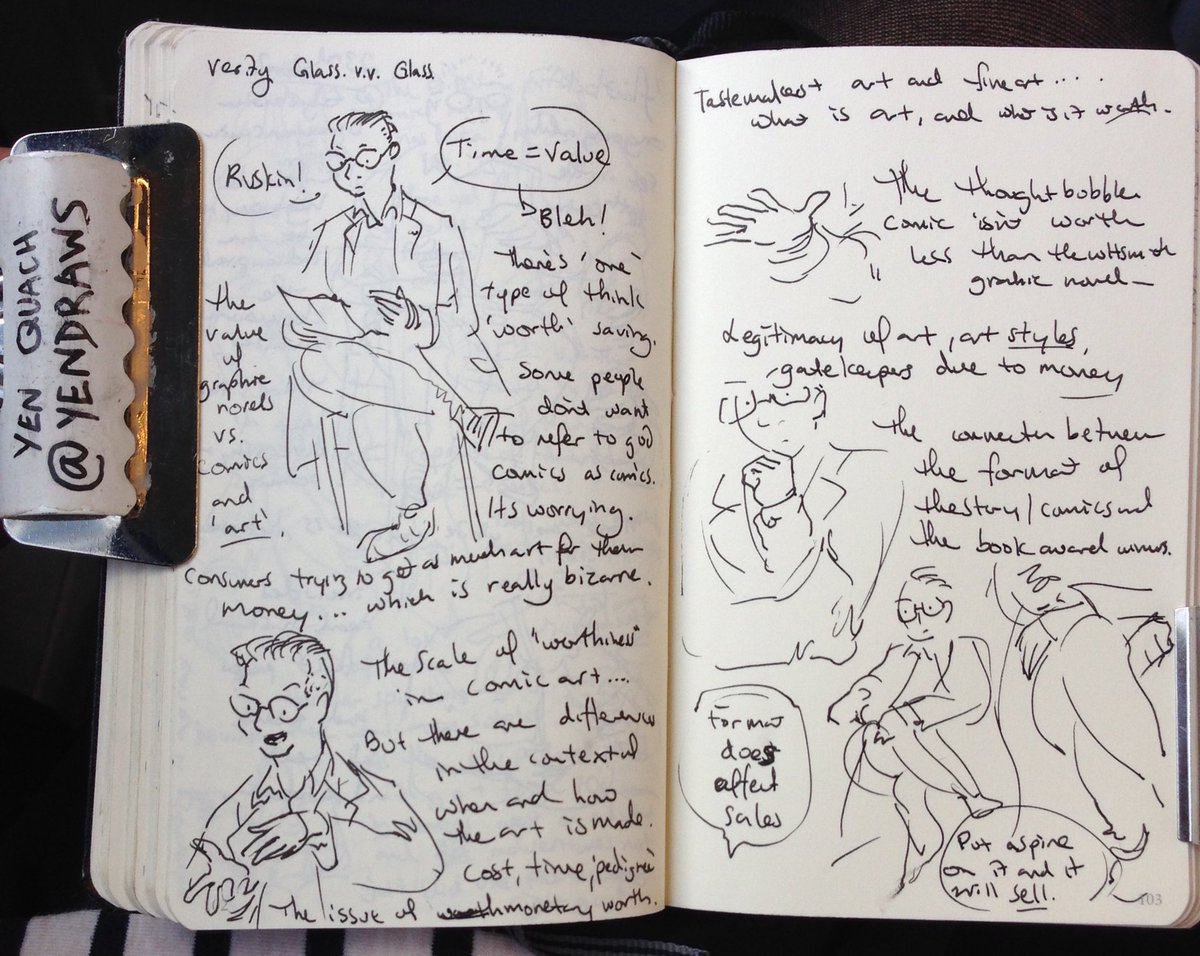 YEN QUACH
@YENDRAWS
Verity Glass. v.v. Glass
Ruskin!
Time = Value
Bleh!
the
value
of
graphic
novels
vs.
comics
and
'art'.
there's 'one'
type of think
'worth' saving.
Some people
don't want
to refer to good
comics as comics.
Its worrying.
Consumers trying to get as much art for their
money... which is really bizarre.
The scale of "worthiness"
in comic art...
But there are differences
in the contextual
when and how
the art is made.
cost, time, 'pedigree'
The issue of monetary worth.
Tastemakers + art and fine art....
what is art, and who is it worth.
The thoughtbubble
comic isn't worth
less than the whsmith
graphic novel—
Legitimacy of art, art styles,
gatekeepers due to money
the connection between
the format of
the story / comics and
the book award winners.
Format
does
affect
sales
Put a spine
on it and it
will sell.
103